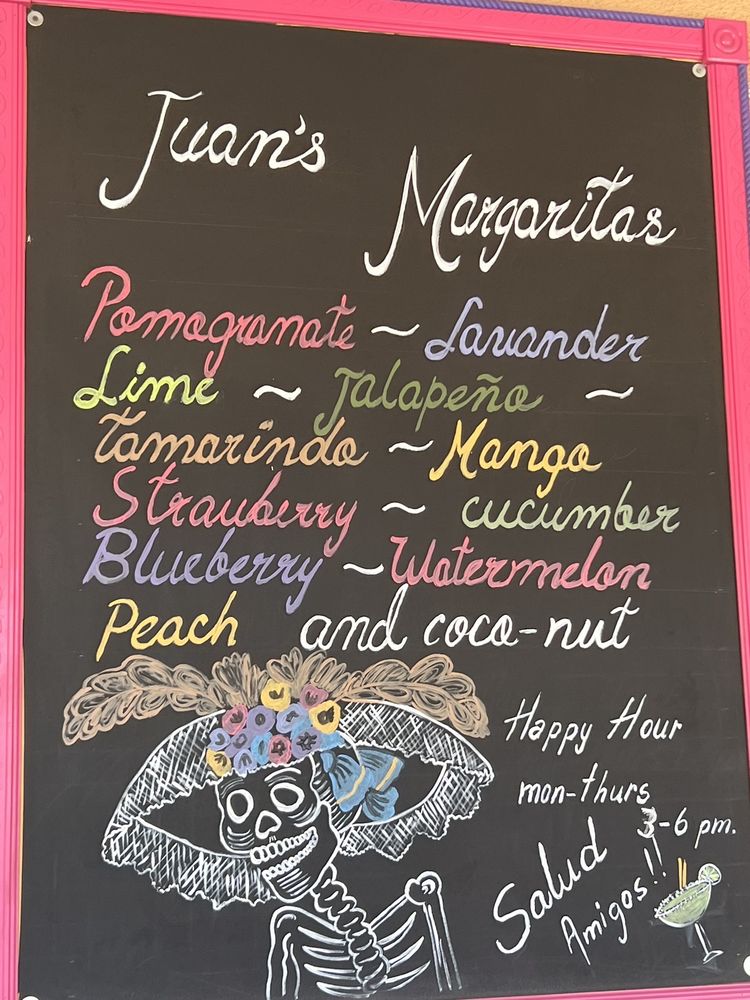 Juan's
Margaritas
Pomagranate ~ Lavander
Lime ~ Jalapeño ~
Tamarindo ~ Mango
Strawberry ~ cucumber
Blueberry ~ Watermelon
Peach and coco-nut
Happy Hour
mon-thurs
3-6 pm.
Salud
Amigos!!